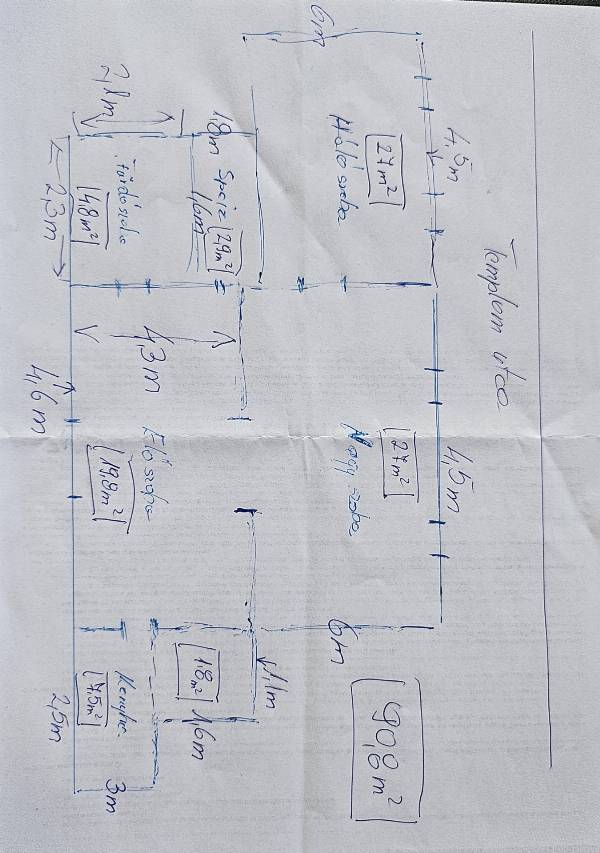 Templom utca
4,5m
4,5m
6m
27m²
Háló szoba
27m²
Nagy szoba
6m
90,8m²
1,8m
Speiz
2,9m²
1,6m
2,1m
Fürdőszoba
4,8m²
2,3m
4,3m
Elő szoba
19,8m²
4,6m
1,1m
1,8m²
1,6m
Konyha
7,5m²
2,5m
3m